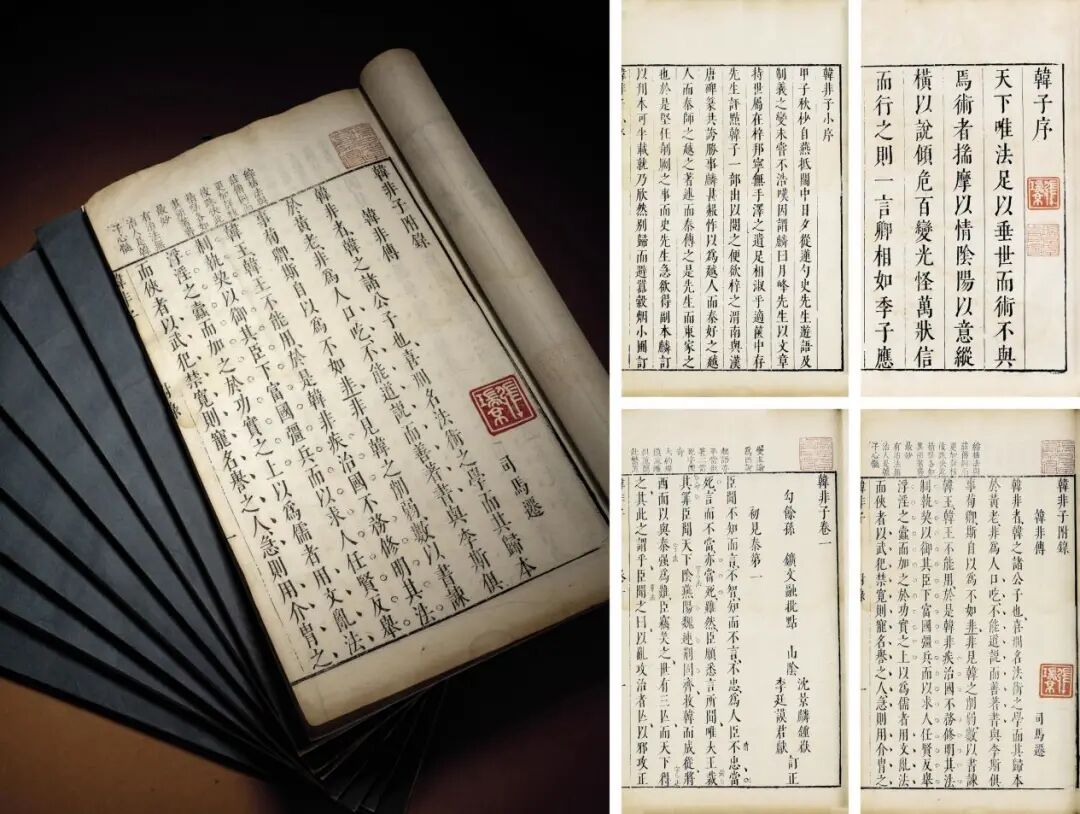 韓非子附錄
韓非傳
司馬遷
韓非者韓之諸公子也喜刑名法術之學而其歸本
於黃老非為人口吃不能道說而善著書與李斯俱
事荀卿斯自以為不如非非見韓之削弱數以書諫
韓王韓王不能用於是韓非疾治國不務修明其法
制執契以御其臣下富國彊兵而以求人任賢反舉
浮淫之蠹而加之於功實之上以為儒者用文亂法
而俠者以武犯禁寬則寵名譽之人急則用介冑之
韓子序
天下唯法足以垂世而術不與
焉術者揣摩以情陰陽以意縱
橫以說傾危百變光怪萬狀信
而行之則一言卿相如季子應
韓非子小序
甲子秋杪自燕抵閩中日夕從蓮勺史先生遊語及
制義之變未嘗不浩嘆因謂麟曰月峰先生以文章
持世屬在梓邦寧無手澤之遺足相淑乎適篋中存
先生評點韓子一部出以閱之便欲梓之渭南與漢
唐碑篆共誇勝事麟甚赧怍以為越人而秦好之越
人而秦師之越之著述而秦傳之是先生而東家之
也於是堅任剞劂之事而史先生急欲得副本麟訂
以刊本可半載就乃欣然別歸而避囂穀烟小圃訂
韓非子附錄
韓非傳
司馬遷
韓非者韓之諸公子也喜刑名法術之學而其歸本
於黃老非為人口吃不能道說而善著書與李斯俱
事荀卿斯自以為不如非非見韓之削弱數以書諫
韓王韓王不能用於是韓非疾治國不務修明其法
制執契以御其臣下富國彊兵而以求人任賢反舉
浮淫之蠹而加之於功實之上以為儒者用文亂法
而俠者以武犯禁寬則寵名譽之人急則用介冑之
韓非子卷一
勾餘孫 鑛文融批點 山陰
沈景麟鍾嶽
李廷謨君猷
訂正
初見秦第一
臣聞不知而言不智知而不言不忠為人臣不忠當
死言而不當亦當死雖然臣願悉言所聞唯大王裁
其罪臣聞天下陰燕陽魏連荊固齊收韓而成從將
西面以與秦强為難臣竊笑之世有三亡而天下得
之其此之謂乎臣聞之曰以亂攻治者亡以邪攻正